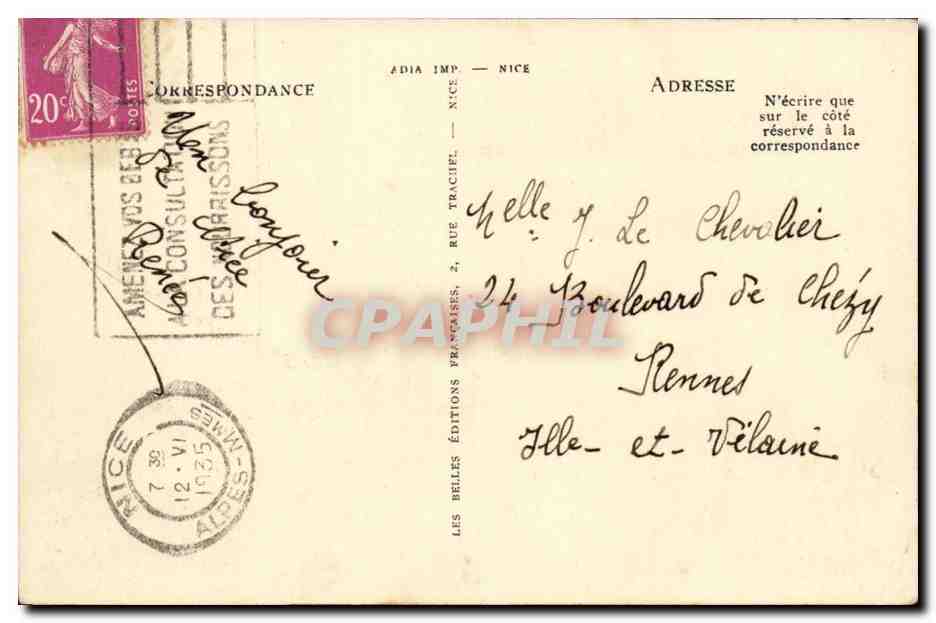 20c
POSTES
CORRESPONDANCE
ADIA IMP. — NICE
ADRESSE
N'écrire que
sur le côté
réservé à la
correspondance
AMENEZ VOS BEB
A CONSULTATI
DES NOURRISSONS
Un bonjour
de Nice
Renée
Melle J. Le Chevalier
24 Boulevard de Chézy
Rennes
Ille-et-Vilaine
LES BELLES ÉDITIONS FRANÇAISES, 2, RUE TRACHEL — NICE
NICE
7 30
12 · VI
1935
ALPES-MMES
CPAPHIL